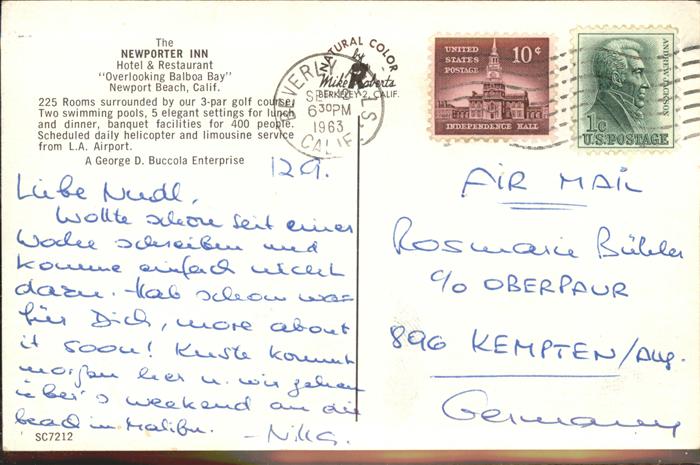 The
NEWPORTER INN
Hotel & Restaurant
"Overlooking Balboa Bay"
Newport Beach, Calif.
225 Rooms surrounded by our 3-par golf course.
Two swimming pools, 5 elegant settings for lunch
and dinner, banquet facilities for 400 people.
Scheduled daily helicopter and limousine service
from L.A. Airport.
A George D. Buccola Enterprise
NATURAL COLOR
by
Mike Roberts
BERKELEY 2, CALIF.
BEVERLY HILLS
SEP
630PM
1963
CALIF.
UNITED
STATES
POSTAGE
10¢
INDEPENDENCE HALL
ANDREW JACKSON
1c
U.S. POSTAGE
12 9.
Liebe Nudl,
Wollte schon seit einer
Woche schreiben und
komme einfach nicht
dazu. Hab schon was
für Dich, more about
it soon! Kriste kommt
morgen her u. wir gehen
über's weekend an die
beach in Malibu.
AIR MAIL
Rosmarie Bühler
c/o OBERPAUR
896 KEMPTEN/Allg.
Germany
SC7212